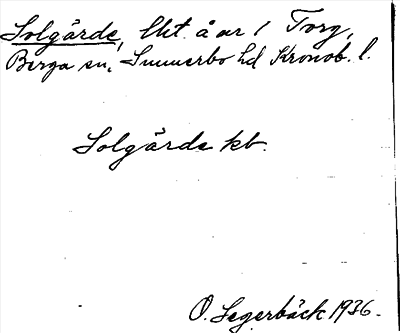 Solgärde, lht. å ar 1 Torg,
Berga sn, Sunnerbo hd Kronob. l.
Solgärde kb.
O. Segerbäck 1936.